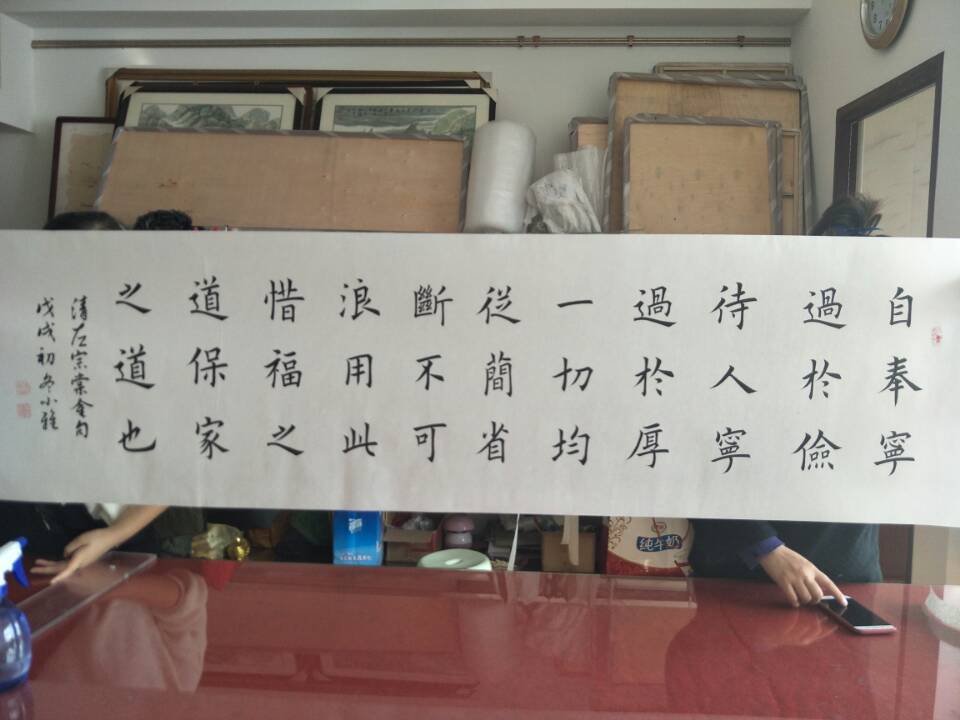 自奉寧
過於儉
待人寧
過於厚
一切均
從簡省
斷不可
浪用此
惜福之
道保家
之道也
清左宗棠金句
戊戌初冬小雅
纯牛奶